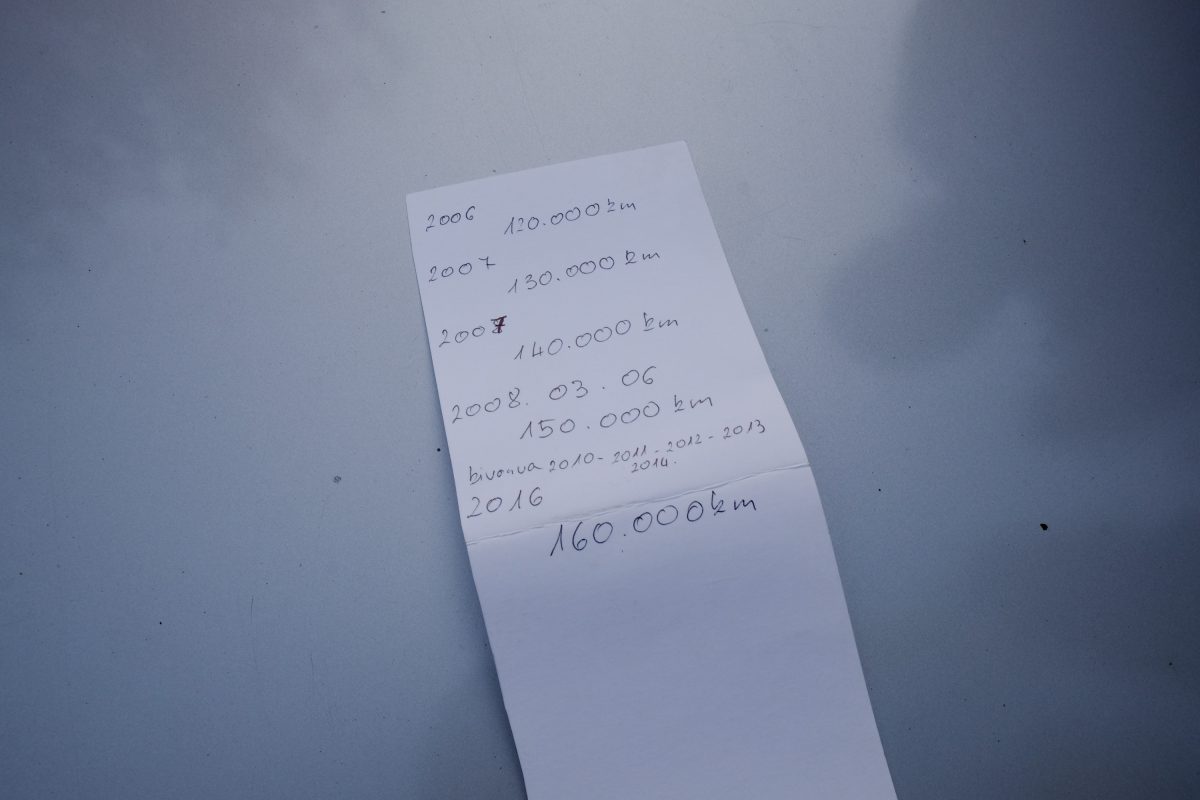 2006
120.000 km
2007
130.000 km
2007
140.000 km
2008. 03. 06
150.000 km
kivonva 2010 - 2011 - 2012 - 2013
2014.
2016
160.000 km